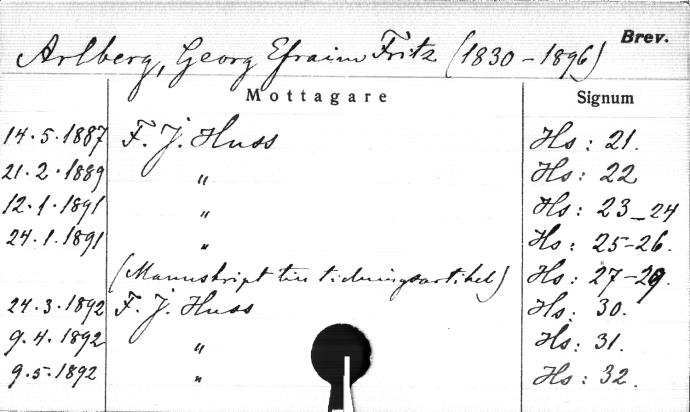 Arlberg, Georg Efraim Fritz (1830-1896) Brev.
Mottagare Signum
14.5.1887 F. J. Huss Hs: 21.
21.2.1889 " Hs: 22
12.1.1891 " Hs: 23-24
24.1.1891 " Hs: 25-26.
(Manuskript till tidningsartikel) Hs: 27-29.
24.3.1892 F. J. Huss Hs: 30.
9.4.1892 " Hs: 31.
9.5.1892 " Hs: 32.